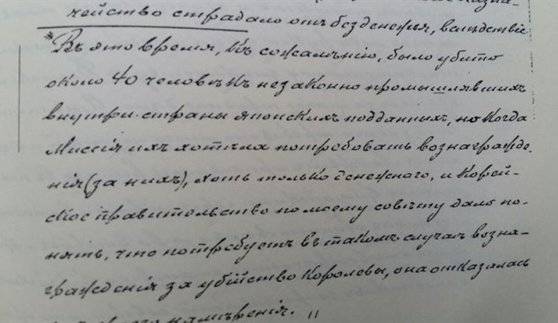 чейство страдало отъ безденежья, вслѣдствіе
Въ это время, къ сожалѣнію, было убито
около 40 человѣкъ незаконно промышлявшихъ
внутри страны японскихъ подданныхъ, но когда
Миссія ихъ хотѣла потребовать вознагражде-
нія (за нихъ), хоть только денежнаго, и Корей-
ское правительство по моему совѣту дало по-
нять, что потребуетъ въ такомъ случаѣ возна-
гражденія за убійство Королевы, она отказалась
намѣренія.